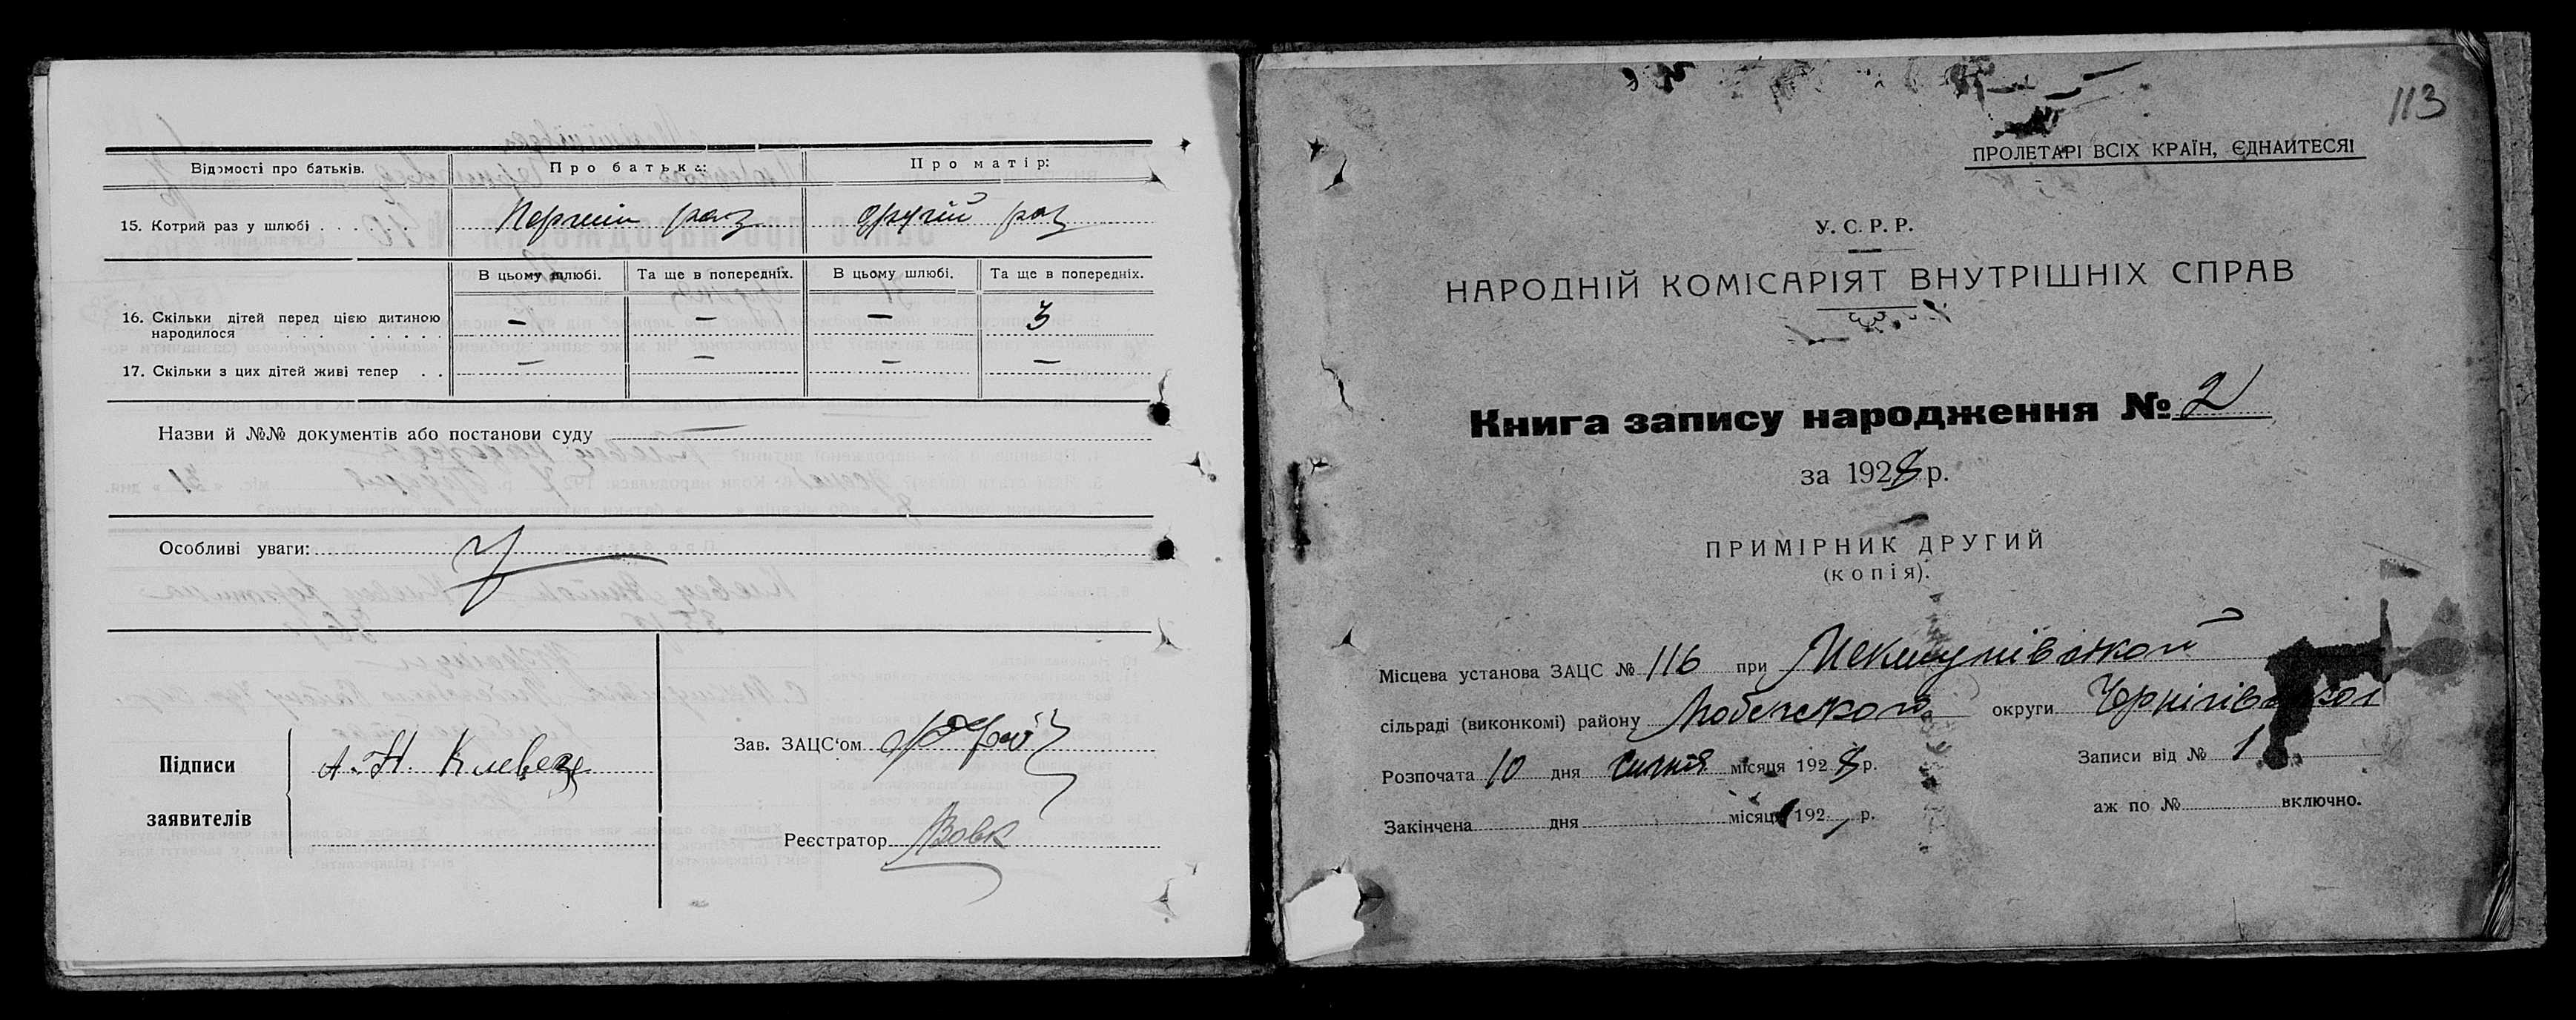 Відомості про батьків. Про батька: Про матір:
15. Котрий раз у шлюбі . . . . . . Перший раз другий раз
В цьому шлюбі. Та ще в попередніх. В цьому шлюбі. Та ще в попередніх.
16. Скільки дітей перед цією дитиною
народилося . . . . . . . . — — — 3
17. Скільки з цих дітей живі тепер . . — — — —
Назви й №№ документів або постанови суду —
Особливі уваги:
Підписи
заявителів
А. Н. Клевец
Зав. ЗАЦС‘ом
Реєстратор Вовк
113
ПРОЛЕТАРІ ВСІХ КРАЇН, ЄДНАЙТЕСЯ!
У. С. Р. Р.
НАРОДНІЙ КОМІСАРІЯТ ВНУТРІШНІХ СПРАВ
Книга запису народження № 2
за 1928 р.
ПРИМІРНИК ДРУГИЙ
(копія).
Місцева установа ЗАЦС № 116 при
сільраді (виконкомі) району округи Чернігівської
Розпочата 10 дня січня місяця 1928 р. Записи від № 1
Закінчена дня місяця 192 р. аж по № включно.